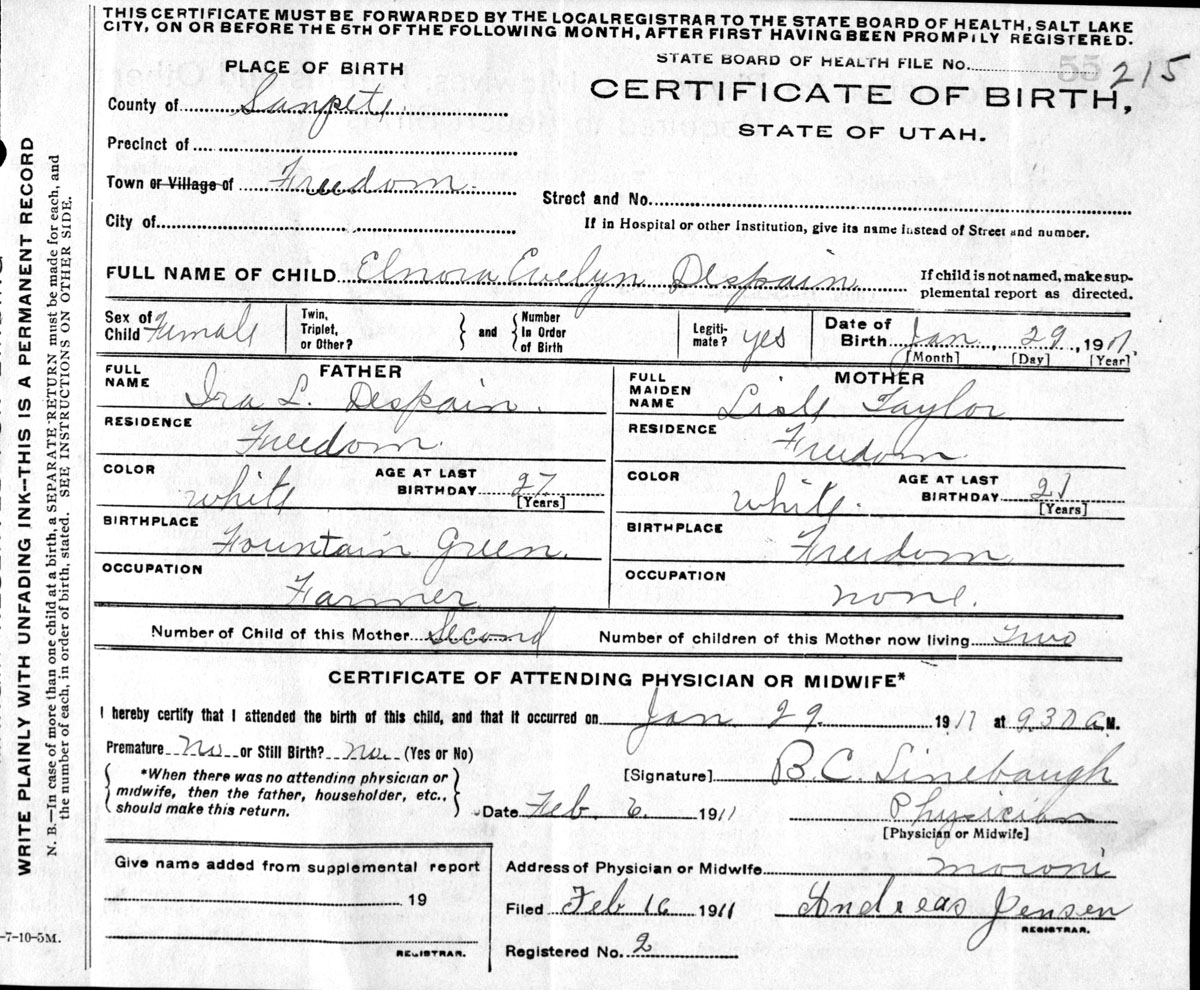 THIS CERTIFICATE MUST BE FORWARDED BY THE LOCAL REGISTRAR TO THE STATE BOARD OF HEALTH, SALT LAKE
CITY, ON OR BEFORE THE 5TH OF THE FOLLOWING MONTH, AFTER FIRST HAVING BEEN PROMPILY REGISTERED.
STATE BOARD OF HEALTH FILE NO. 215
PLACE OF BIRTH
CERTIFICATE OF BIRTH,
STATE OF UTAH.
County of Sanpete
Precinct of
Town or Village of Freedom
Street and No.
City of
If in Hospital or other Institution, give its name instead of Street and number.
FULL NAME OF CHILD Elnora Evelyn Despain
If child is not named, make sup-
plemental report as directed.
Sex of Child Female
Twin, Triplet, or Other?
and
Number In Order of Birth
Legiti-mate? yes
Date of Birth Jan, 29, 1911
[Month] [Day] [Year]
FATHER
FULL NAME Ira L. Despain.
RESIDENCE Freedom
COLOR white AGE AT LAST BIRTHDAY 27 [Years]
BIRTHPLACE Fountain Green.
OCCUPATION Farmer
MOTHER
FULL MAIDEN NAME Lisle Taylor
RESIDENCE Freedom
COLOR white. AGE AT LAST BIRTHDAY 21 [Years]
BIRTHPLACE Freedom
OCCUPATION none.
Number of Child of this Mother Second Number of children of this Mother now living Two
CERTIFICATE OF ATTENDING PHYSICIAN OR MIDWIFE*
I hereby certify that I attended the birth of this child, and that it occurred on Jan 29 1911 at 930 a.M.
Premature No or Still Birth? no (Yes or No)
*When there was no attending physician or
midwife, then the father, householder, etc.,
should make this return.
[Signature] B.C. Linebaugh
Date Feb. 6. 1911 Physician
[Physician or Midwife]
Give name added from supplemental report
19
REGISTRAR.
Address of Physician or Midwife moroni
Filed Feb 16 1911 Andreas Jensen
REGISTRAR.
Registered No. 2
-7-10-5M.
WRITE PLAINLY WITH UNFADING INK--THIS IS A PERMANENT RECORD
N. B.—In case of more than one child at a birth, a SEPARATE RETURN must be made for each, and
the number of each, in order of birth, stated. SEE INSTRUCTIONS ON OTHER SIDE.